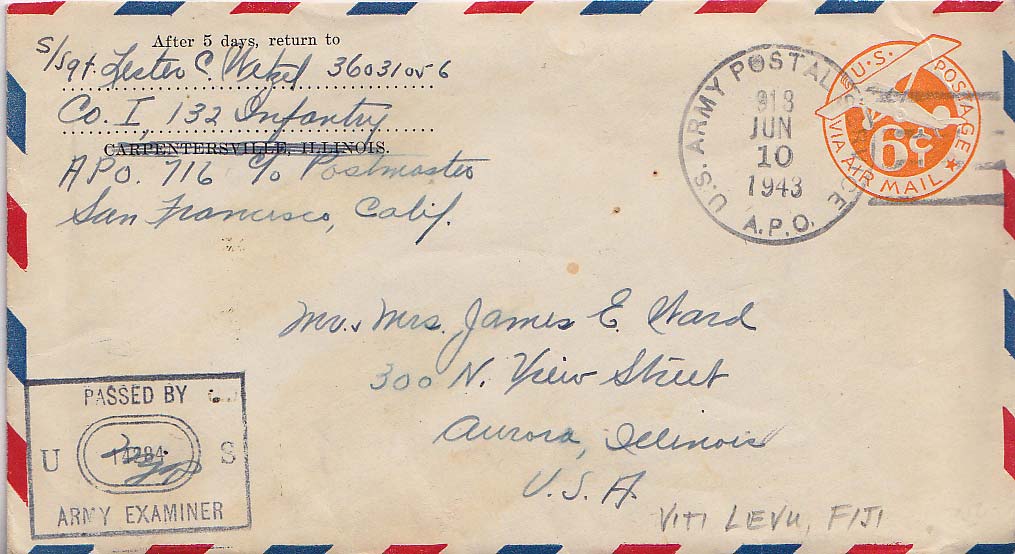 After 5 days, return to
S/Sgt. Lester C. Wetzel 36031056
Co. I, 132 Infantry
CARPENTERSVILLE, ILLINOIS.
A.P.O. 716 c/o Postmaster
San Francisco, Calif.
U.S. ARMY POSTAL SERVICE
JUN
10
1943
A.P.O.
U.S. POSTAGE
6¢
VIA AIR MAIL
Mr. & Mrs. James E. Ward
300 N. View Street
Aurora, Illinois
U.S.A.
PASSED BY
U S
ARMY EXAMINER
VITI LEVU, FIJI